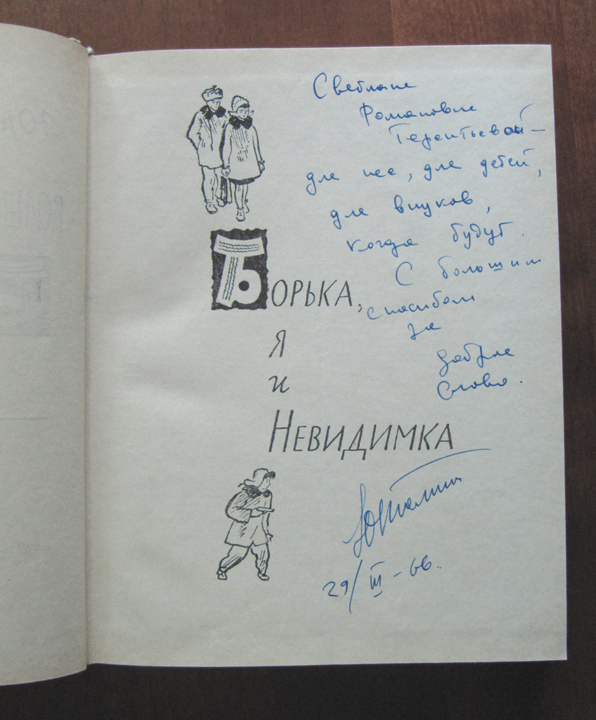 Светлане
Романовне
Терентьевой –
для нее, для детей,
для внуков,
когда будут.
С большим
спасибом
за
добрые
слова.
Борька,
я
и
Невидимка
29/III – 66.